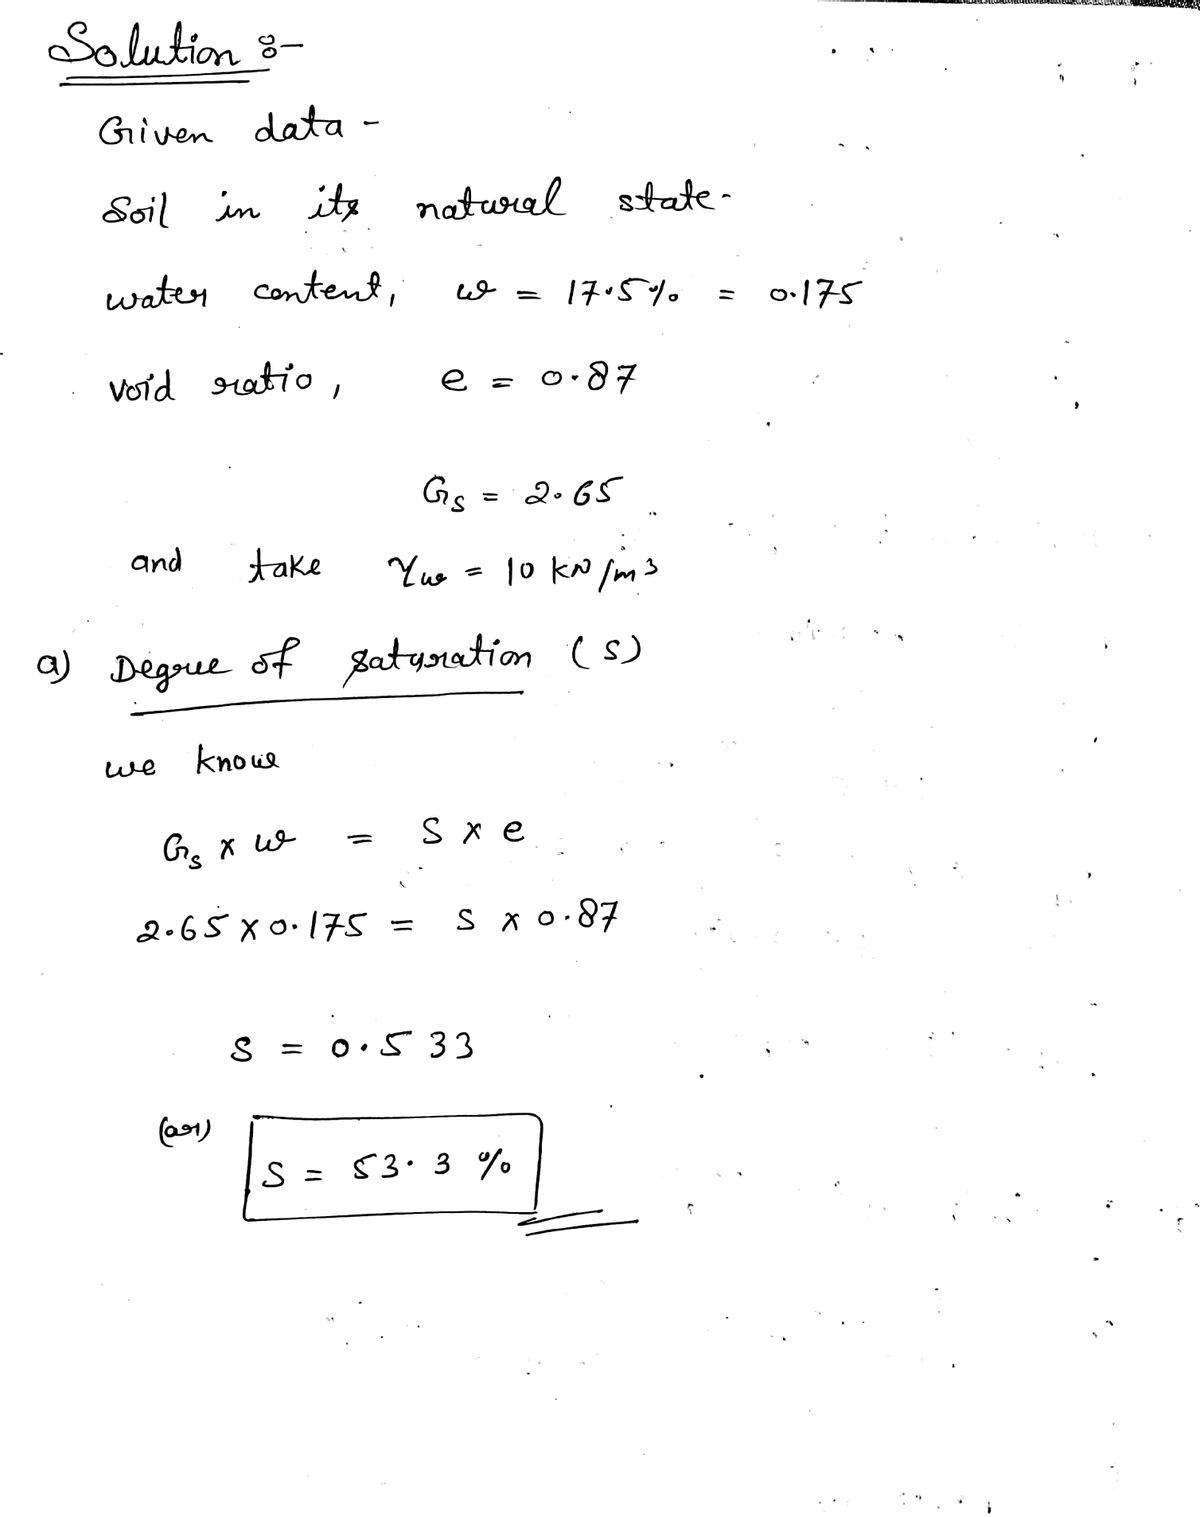 Solution :-
Given data -
Soil in its natural state -
water content, w = 17.5% = 0.175
void ratio, e = 0.87
Gs = 2.65
and take γw = 10 kN/m³
a) Degree of saturation (S)
we know
Gs × w = S × e
2.65 × 0.175 = S × 0.87
S = 0.533
(or)
S = 53.3 %